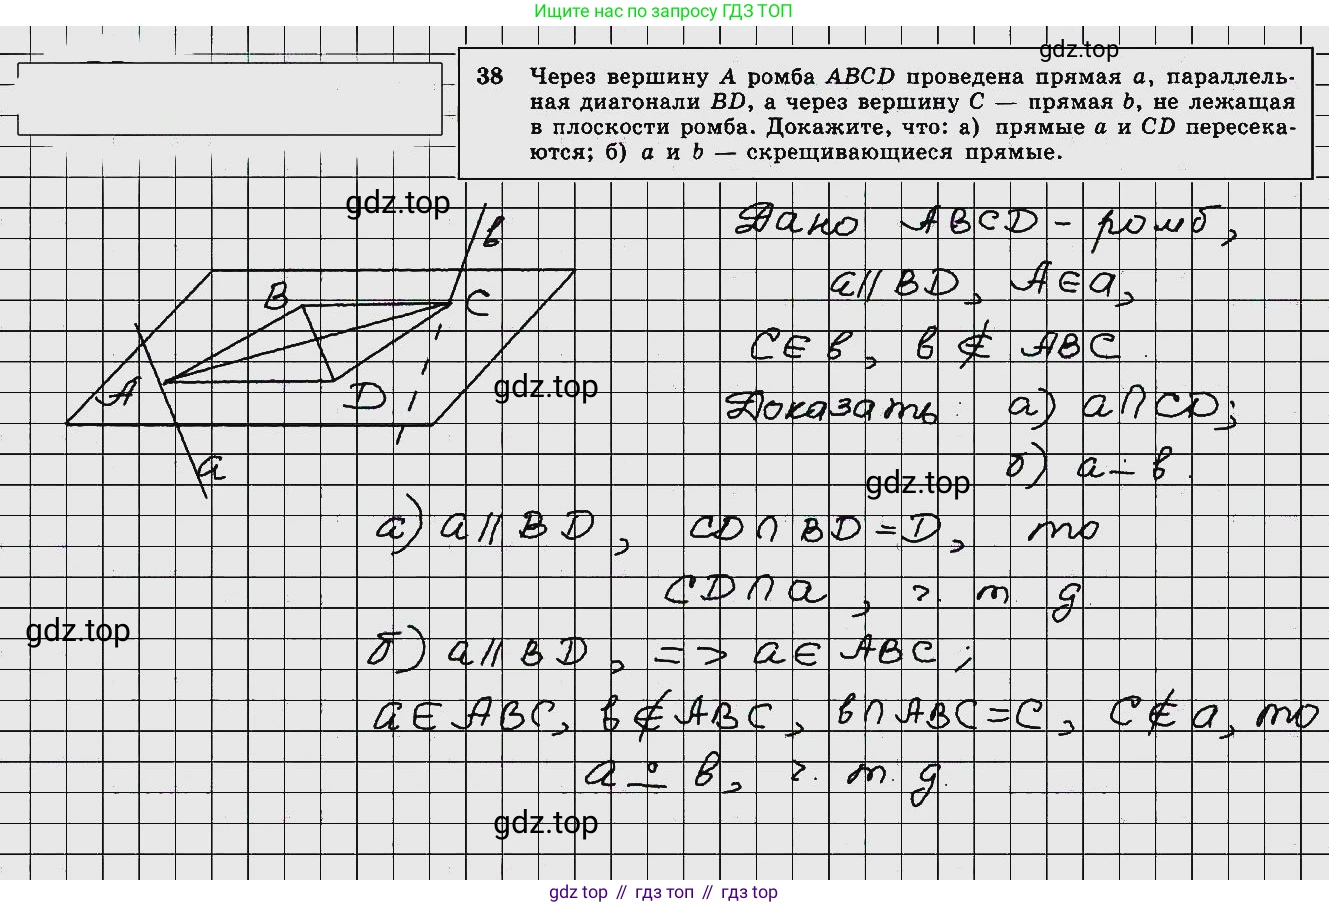 Ищите нас по запросу ГДЗ ТОП
gdz.top
38 Через вершину A ромба ABCD проведена прямая a, параллель-
ная диагонали BD, а через вершину C — прямая b, не лежащая
в плоскости ромба. Докажите, что: а) прямые a и CD пересека-
ются; б) a и b — скрещивающиеся прямые.
gdz.top
в
B
C
A
D
a
gdz.top
Дано ABCD - ромб,
a || BD, A ∈ a,
C ∈ в, в ∉ ABC
Доказать: а) a ∩ CD;
б) a ∸ в.
gdz.top
а) a || BD, CD ∩ BD = D, то
CD ∩ a, ч. т. д
gdz.top
б) a || BD, => a ∈ ABC;
a ∈ ABC, в ∉ ABC, в ∩ ABC = C, C ∉ a, то
a ∸ в, ч. т. д.
gdz.top
gdz top // гдз топ // gdz top